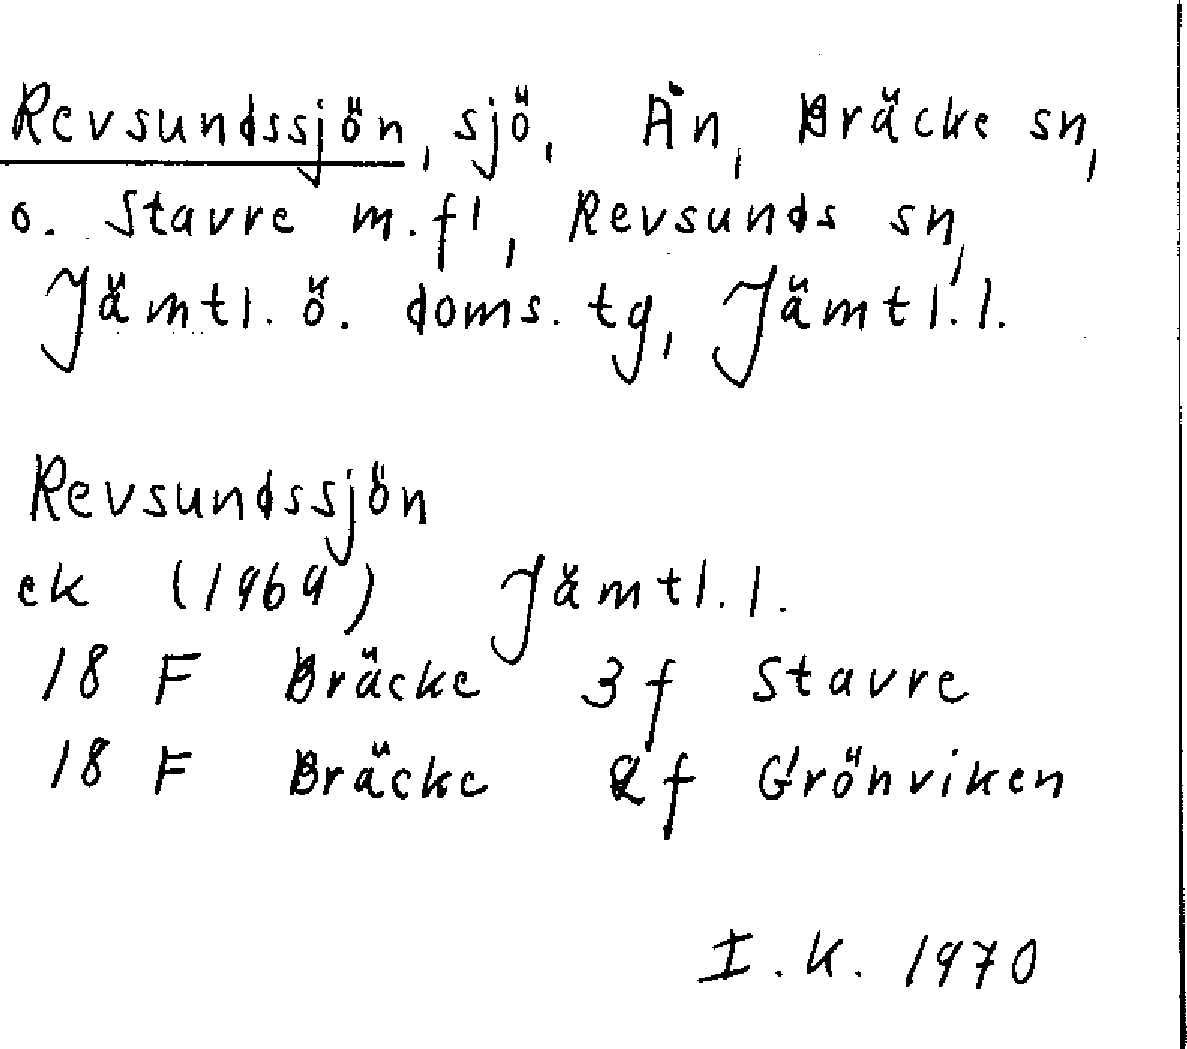 Revsundssjön, sjö, Än, Bräcke sn,
o. Stavre m.fl, Revsunds sn,
Jämtl. ö. doms. tg, Jämtl. l.
Revsundssjön
ek (1969) Jämtl. l.
18 F Bräcke 3f Stavre
18 F Bräcke 2f Grönviken
I.K. 1970